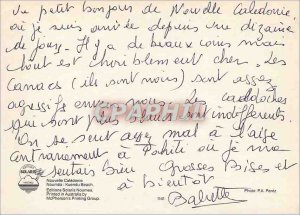 Un petit bonjour de Nouvelle Calédonie
où je suis arrivée depuis une dizaine
de jours. Il y a de beaux coins mais
tout est horriblement cher. Les
Canacs (ils sont nous) sont assez
agressifs envers nous. Les Caldoches
qui sont indifférents.
On se sent assez mal à l'aise
contrairement à Tahiti où je me
sentais bien Grosses Bises et
à bientôt
Babette
SOLARIS
Nouvelle Calédonie
Nouméa: Kuendu Beach.
Editions Solaris Nouméa.
Printed in Australia by
McPherson's Printing Group.
Photo: P.A. Pantz